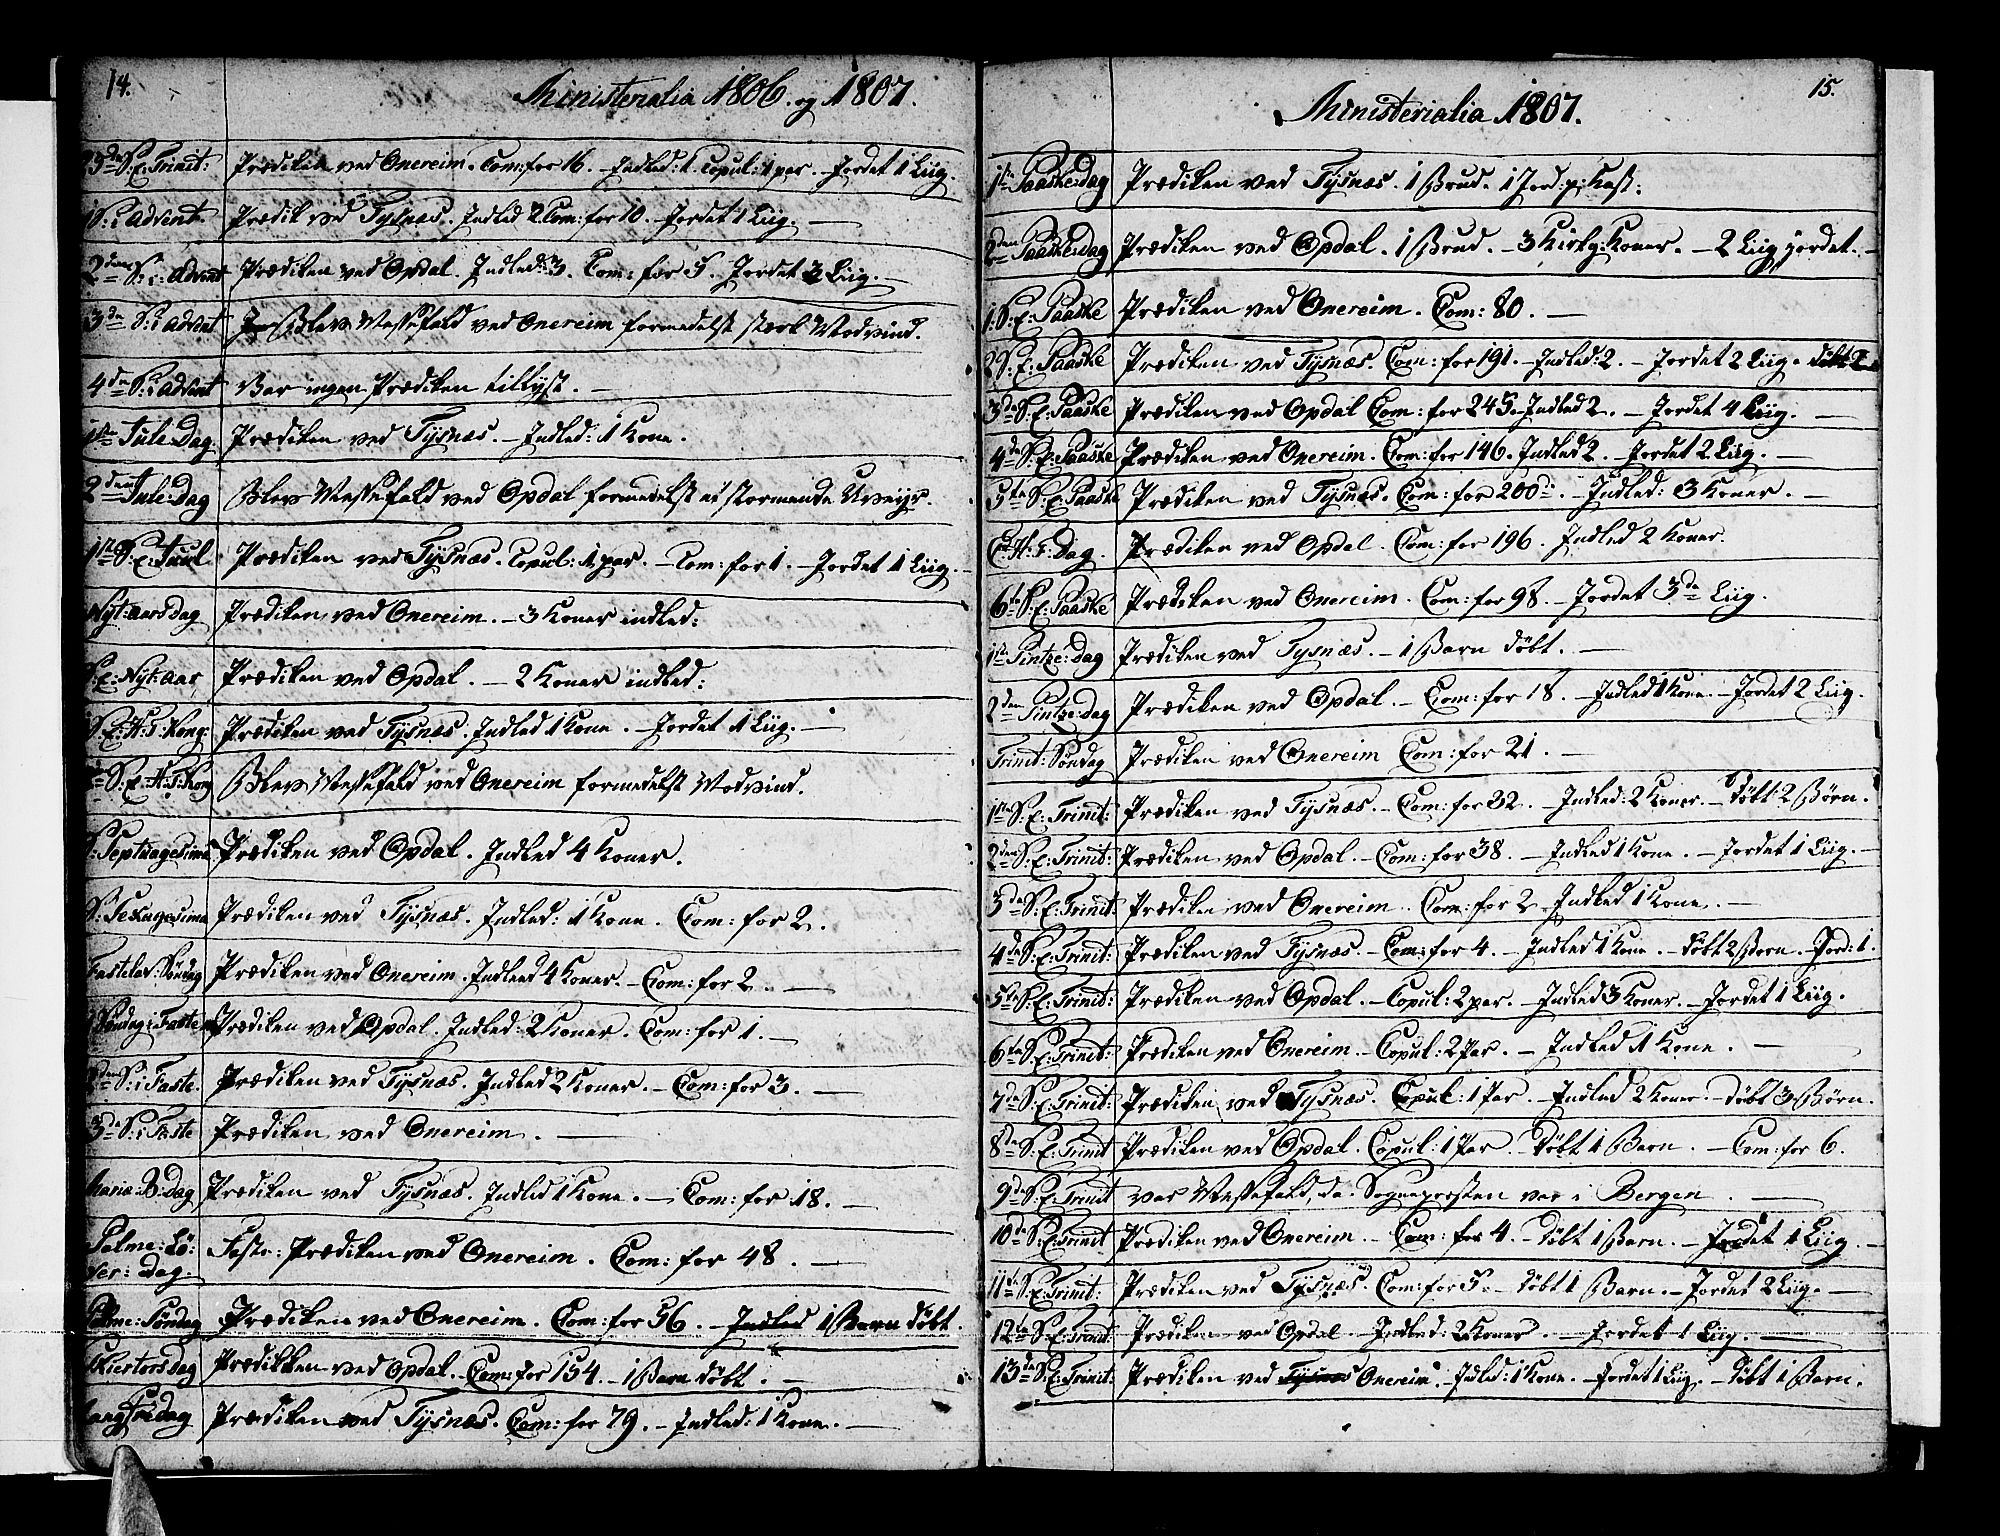 14.
Ministerialia 1806. og 1807.
23de S: E: Trinit: Prædiken ved Onereim. Com: for 16. – Indled: 1. Copul: 1 par. – Jordet 1 Liig.
1 S: i Advent Prædik ved Tysnæs. Indled 2 Com: for 10. – Jordet 1 Liig. –
2den S: i Advent Prædiken ved Opdal. Indled: 3. Com: for 5. Jordet 3 Liig. –
3de S: i Advent Blev Messefald ved Onereim formedelst stærk Modvind.
4de S: i Advent Var ingen Prædiken tillyst. –
1ste Jule:Dag Prædiken ved Tysnæs. – Indled: 1 Kone.
2den Jule:Dag Blev Messefald ved Opdal formedelst et stormende Uveijr.
1ste S: E: Juul Prædiken ved Tysnæs. Copul: 1 par. – Com: for 1. – Jordet 1 Liig. –
Nyt:aarsdag Prædiken ved Onereim. – 3 Koner indled:
S: E: Nyt:aar Prædiken ved Opdal. – 2 Koner indled:
S: E: H: 3 Kong: Prædiken ved Tysnæs. Indled 1 Kone. – Jordet 1 Liig. –
S: E: H: 3 Kong Blev Messefald ved Onereim formedelst Modvind.
S: Septuagesima Prædiken ved Opdal. Indled 4 Koner.
S: Sexagesima Prædiken ved Tysnæs. Indled: 1 Kone. Com: for 2.
Fastelav: Søndag Prædiken ved Onereim. Indled 4 Koner. – Com: for 2. –
Søndag i Fasten Prædiken ved Opdal. Indled: 2 Koner. Com: for 1. –
2den S: i Faste. Prædiken ved Tysnæs. Indled 2 Koner. – Com: for 3. –
3de S: i Faste Prædiken ved Onereim. –
Mariæ: B: dag Prædiken ved Tysnæs. Indled 1 Kone. – Com: for 18. –
Palme: Lø: Faste: Prædiken ved Onereim. Com: for 48. –
ver: Dag.
Palme: Søndag Prædiken ved Onereim. Com: for 56. – Indled 1 Barn døbt.
Skiertorsdag Prædikken ved Opdal. Com: for 154. – 1 Barn døbt. –
Langfredag Prædiken ved Tysnæs. Com: for 79. – Indled: 1 Kone. –
15.
Ministerialia 1807.
1ste Paaske:dag Prædiken ved Tysnæs. 1 Brud. 1 Jord: p: Kast:
2den Paaske:dag Prædiken ved Opdal. 1 Brud. – 3 Kirkg: Koner. – 2 Liig jordet. –
1: S: E: Paaske Prædiken ved Onereim. Com: 80. –
2 S: E: Paaske Prædiken ved Tysnæs. Com: for 191. – Indled: 2. – Jordet 2 Liig. døbt 2
3de S: E: Paaske Prædiken ved Opdal Com: for 245. Indled 2. – Jordet 4 Liig. –
4de S: E: Paaske Prædiken ved Onereim. Com: for 146. Indled 2. – Jordet 2 Liig. –
5te S: E: Paaske Prædiken ved Tysnæs. Com: for 200de. – Indled: 3 Koner. –
C: H: F: dag. Prædiken ved Opdal. Com: for 196. Indled 2 Koner.
6te S: E: Paaske Prædiken ved Onereim. Com: for 98. – Jordet 3de Liig.
1ste Pintze: dag Prædiken ved Tysnæs. – 1 Barn døbt. –
2den Pintze: dag Prædiken ved Opdal. – Com: for 18. – Indled 1 Kone. – Jordet 2 Liig.
Trinit: Søndag Prædiken ved Onereim Com: for 21. –
1ste S: E: Trinit: Prædiken ved Tysnæs. – Com: for 32. – Indled: 2 Koner. – Døbt 2 Børn.
2den S: E: Trinit: Prædiken ved Opdal. – Com: for 38. – Indled 1 Kone. – Jordet 1 Liig. –
3de S: E: Trinit: Prædiken ved Onereim. Com: for 2. Indled 1 Kone. –
4de S: E: Trinit: Prædiken ved Tysnæs. – Com: for 4. – Indled 1 Kone. – Døbt 2 Børn. – Jord: 1.
5te S: E: Trinit: Prædiken ved Opdal. – Copul: 2 par. – Indled 3 Koner. – Jordet 1 Liig.
6te S: E: Trinit: Prædiken ved Onereim. – Copul: 2 Par. – Indled 1 Kone. –
7de S: E: Trinit: Prædiken ved Tysnæs. Copul: 1 Par. – Indled 2 Koner. – Døbt 3 Børn.
8de S: E: Trinit Prædiken ved Opdal. Copul: 1 Par. Døbt 1 Barn. – Com: for 6.
9de S: E: Trinit var Messefald, da Sognepræsten var i Bergen. –
10de S: E: Trinit Prædiken ved Onereim. – Com: for 4. – Døbt 1 Barn. – Jordet 1 Liig. –
11te S: E: Trinit: Prædiken ved Tysnæs. Com: for 5. – Døbt 1 Barn. – Jordet 2 Liig. –
12te S: E: Trinit: Prædiken ved Opdal. – Indled: 2 Koner. – Jordet 1 Liig. –
13de S: E: Trinit: Prædiken ved Tysnæs Onereim. – Indled: 1 Kone. – Jordet 1 Liig. – Døbt 1 Barn.